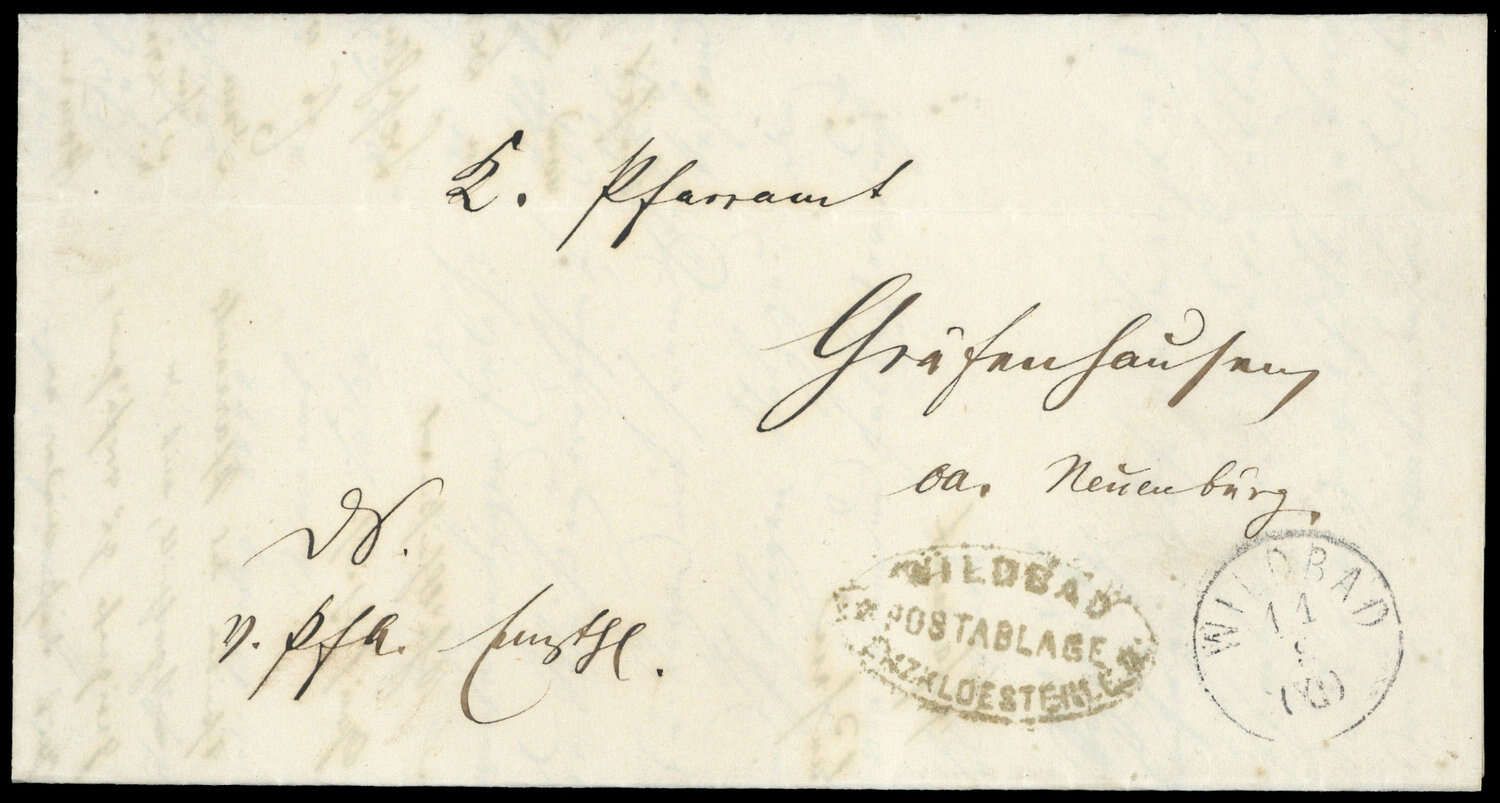 K. Pfarramt
Gräfenhausen
OA. Neuenbürg.
DS.
v. PfA.
WILDBAD
POSTABLAGE
ENZKLOESTERLE
WILDBAD
11